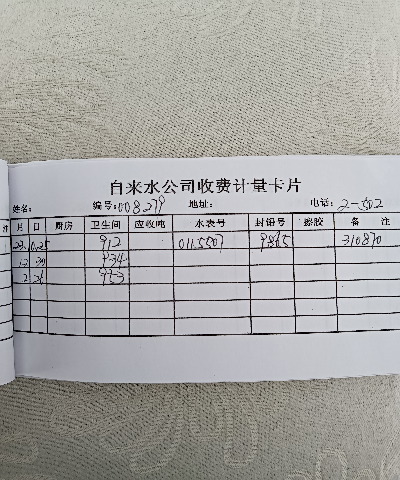 自来水公司收费计量卡片
姓名: 编号: 008279 地址: 电话: 2-502
注 月 日 厨房 卫生间 应收吨 水表号 封铅号 擦胶 备 注
23. 10.25 912 0115507 9865 310870
12 29 934
2 26 953